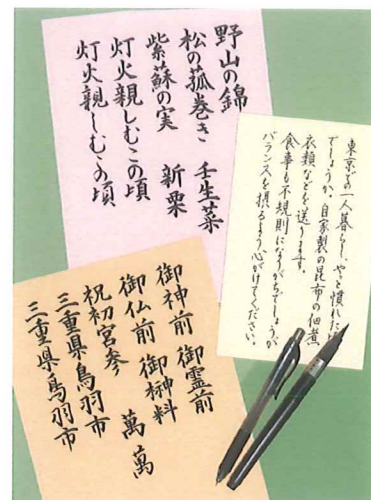 野山の錦
松の菰巻き　壬生菜
紫蘇の実　新栗
灯火親しむこの頃
灯火親しむこの頃
東京での一人暮らし、やっと慣れた頃
でしょうか。自家製の昆布の佃煮
衣類などを送ります。
食事も不規則になりがちでしょうが
バランスを摂るよう心がけてください。
御神前　御霊前
御仏前　御榊料
祝初宮参　萬　萬
三重県鳥羽市
三重県鳥羽市